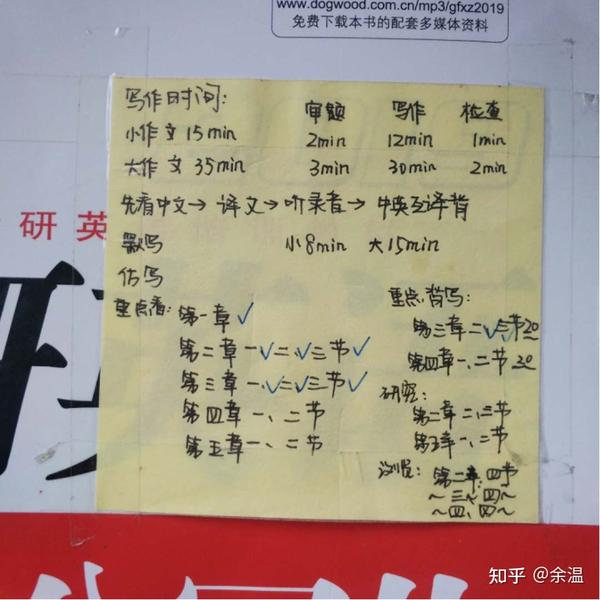 www.dogwood.com.cn/mp3/gfxz2019
免费下载本书的配套多媒体资料
写作时间: 审题 写作 检查
小作文 15min 2min 12min 1min
大作文 35min 3min 30min 2min
先看中文→译文→听录音→中英互译背
默写 小8min 大15min
仿写
重点看: 第一章✓
第二章一✓二✓三节✓
第三章一✓二✓三节✓
第四章一、二节
第五章一、二节
重点背写:
第三章二✓三节20
第四章一、二节20
研究:
第二章二、三节
第五章一、二节
浏览: 第二章、四节
~三、四~
~四、四~
研英
知乎 @余温